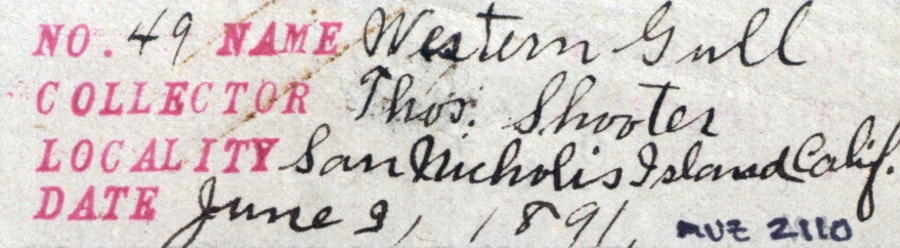 NO. 49 NAME Western Gull
COLLECTOR Thos. Shooter
LOCALITY San Nicholis Island Calif.
DATE June 9, 1891,
MVZ 2110